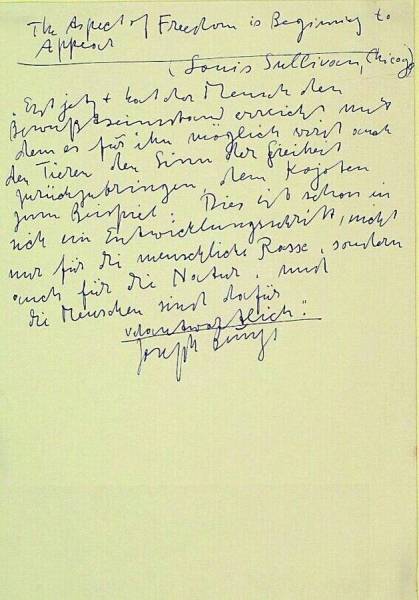 The Aspect of Freedom is Beginning to
Appear
(Louis Sullivan, Chicago)
"Erst jetzt hat der Mensch den
Bewußtseinsstand erreicht mit
dem es für ihn möglich wird auch
den Tieren den Sinn der Freiheit
zurückzubringen, dem Kojoten
zum Beispiel. Dies ist schon in
sich ein Entwicklungsschritt, nicht
nur für die menschliche Rasse, sondern
auch für die Natur, und
die Menschen sind dafür
verantwortlich."
Joseph Beuys